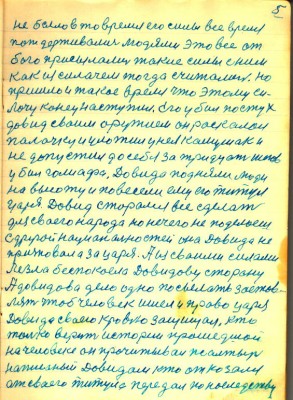 5
не было в то время его силы все время
поддерживалис людями это все от
бога присылали такие силы с ним
как и силачем тогда считалися. но
пришло и такое время что этому си-
лочу конец наступил. Его убил постух
довид своим оружием он расколол
палочку и уложил у нея камушек и
не допустил до себя за тридцат шагов
убил голиафа. Довида подняли люди
на высоту и повесели ему его титул
царя Довид сторолся все сделат
для своего народа но нечего не поделаеш
с другой национальностей она Довида не
признавала за царя. А из своими силами
лезла беспокоела Довидову сторону
А довидова дело одно посылать застов-
лят чтоб человек имел и право царя
Довида своего кровью защищал, кто
только верит истории прошедшой
на человеке он прочитывая псалтыр
написаный Довидом кто отказался
от своего титула передал по последству